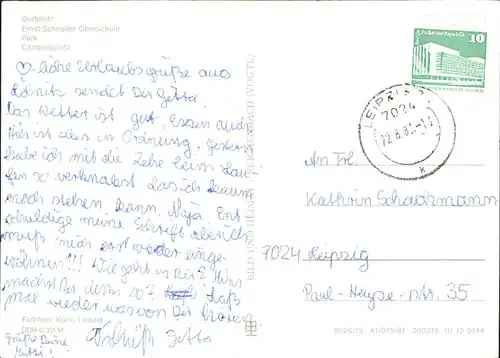 Dorfplatz
Ernst-Schneller-Oberschule
Park
Campingplatz
liche Urlaubsgrüße aus
sendet Dir Jetta.
Das Wetter ist gut, Essen auch
Hier ist alles in Ordnung. Gestern
habe ich mir die Zehe beim Lau-
fen so verknakst das ich kaum
noch stehen kann. Naja. Ent-
schuldige meine Schrift aber ich
muß mich erst wieder einge-
wöhnen!!! Wie geht es Dir? Was
machst Du denn so? Laß
mal wieder was von Dir hören
Tschüß Jetta
Grüße Deine
Mutti!
Farbfoto: Kühn, Leipzig
DDR 0,20 M
BILD UND HEIMAT REICHENBACH (VOGTL)
10
LEIPZIG
7024
An Frl.
Kathrin Schackmann
7024 Leipzig
Paul-Heyse-Str. 35
A1/315/81
01 12 0144